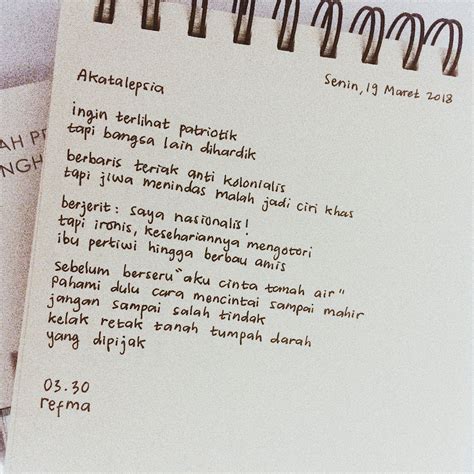 Senin, 19 Maret 2018
Akatalepsia
ingin terlihat patriotik
tapi bangsa lain dihardik
berbaris teriak anti kolonialis
tapi jiwa menindas malah jadi ciri khas
berjerit: saya nasionalis!
tapi ironis, kesehariannya mengotori
ibu pertiwi hingga berbau amis
sebelum berseru "aku cinta tanah air"
pahami dulu cara mencintai sampai mahir
jangan sampai salah tindak
kelak retak tanah tumpah darah
yang dipijak
03.30
refma
AH PE
NGH